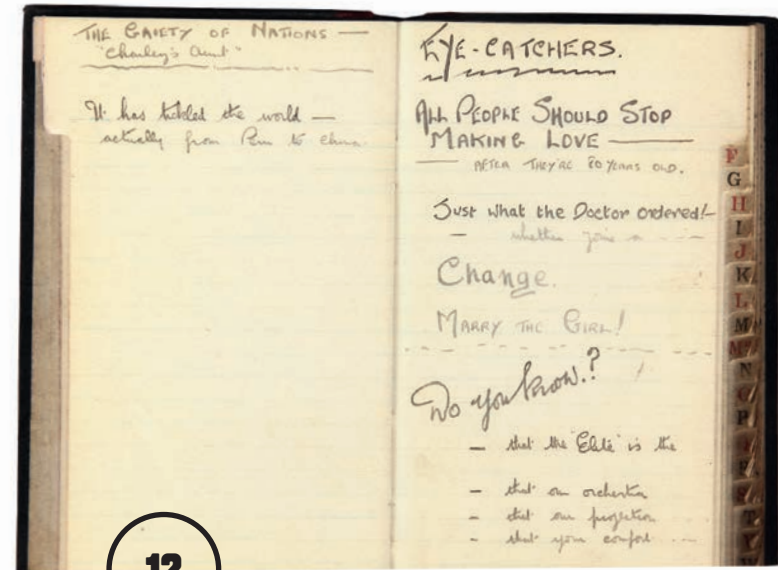 THE GAIETY OF NATIONS —
"Charley's Aunt"
It has tickled the world —
actually from Peru to China.
EYE-CATCHERS.
ALL PEOPLE SHOULD STOP
MAKING LOVE —
— AFTER THEY'RE 80 YEARS OLD.
Just what the Doctor ordered!—
— whether you're a - - -
Change.
MARRY THE GIRL!
Do you know.?
— that the "Elite" is the
— that our orchestra
— that our projection
— that your comfort ...
F
G
H
I
J
K
L
M
Mc
N
O
P
R
S
T
12